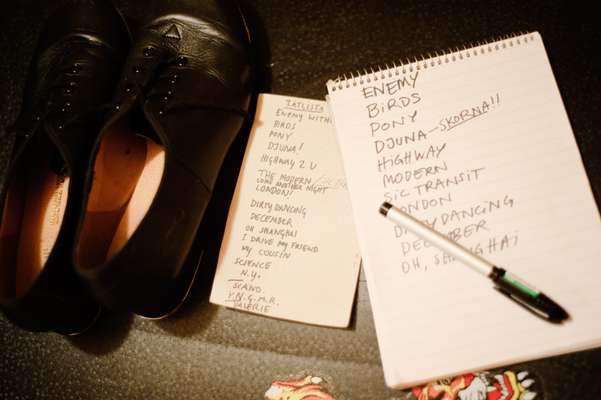 LATLISTA
ENEMY WITHI
BIRDS
PONY
DJUNA!
HIGHWAY 2 U
THE MODERN
COME ANOTHER NIGHT
LONDON!
DIRTY DANCING
DECEMBER
OH SHANGHAI
I DRIVE MY FRIEND
MY COUSIN
SCIENCE
N.Y.
SCAND.
Y.N.G.M.R.
VALERIE
ENEMY
BiRDS
PONY
DJUNA – SKORNA!!
HIGHWAY
MODERN
SIC TRANSIT
LONDON
DIRTY DANCING
DECEMBER
OH, SHANGHAI